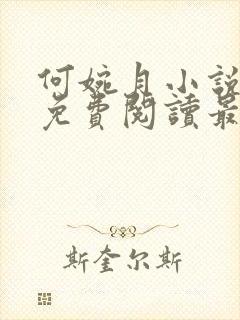 何婉月小說
免費閱讀最
斯奎尔斯